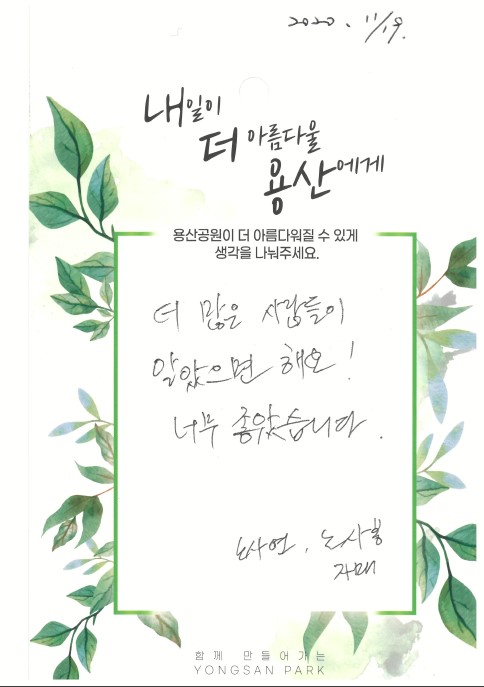 2020. 11/19.
내일이
더 아름다울
용산에게
용산공원이 더 아름다워질 수 있게
생각을 나눠주세요.
더 많은 사람들이
알았으면 해요!
너무 좋았습니다.
노사연, 노사봉
자매
함께 만들어가는
YONGSAN PARK